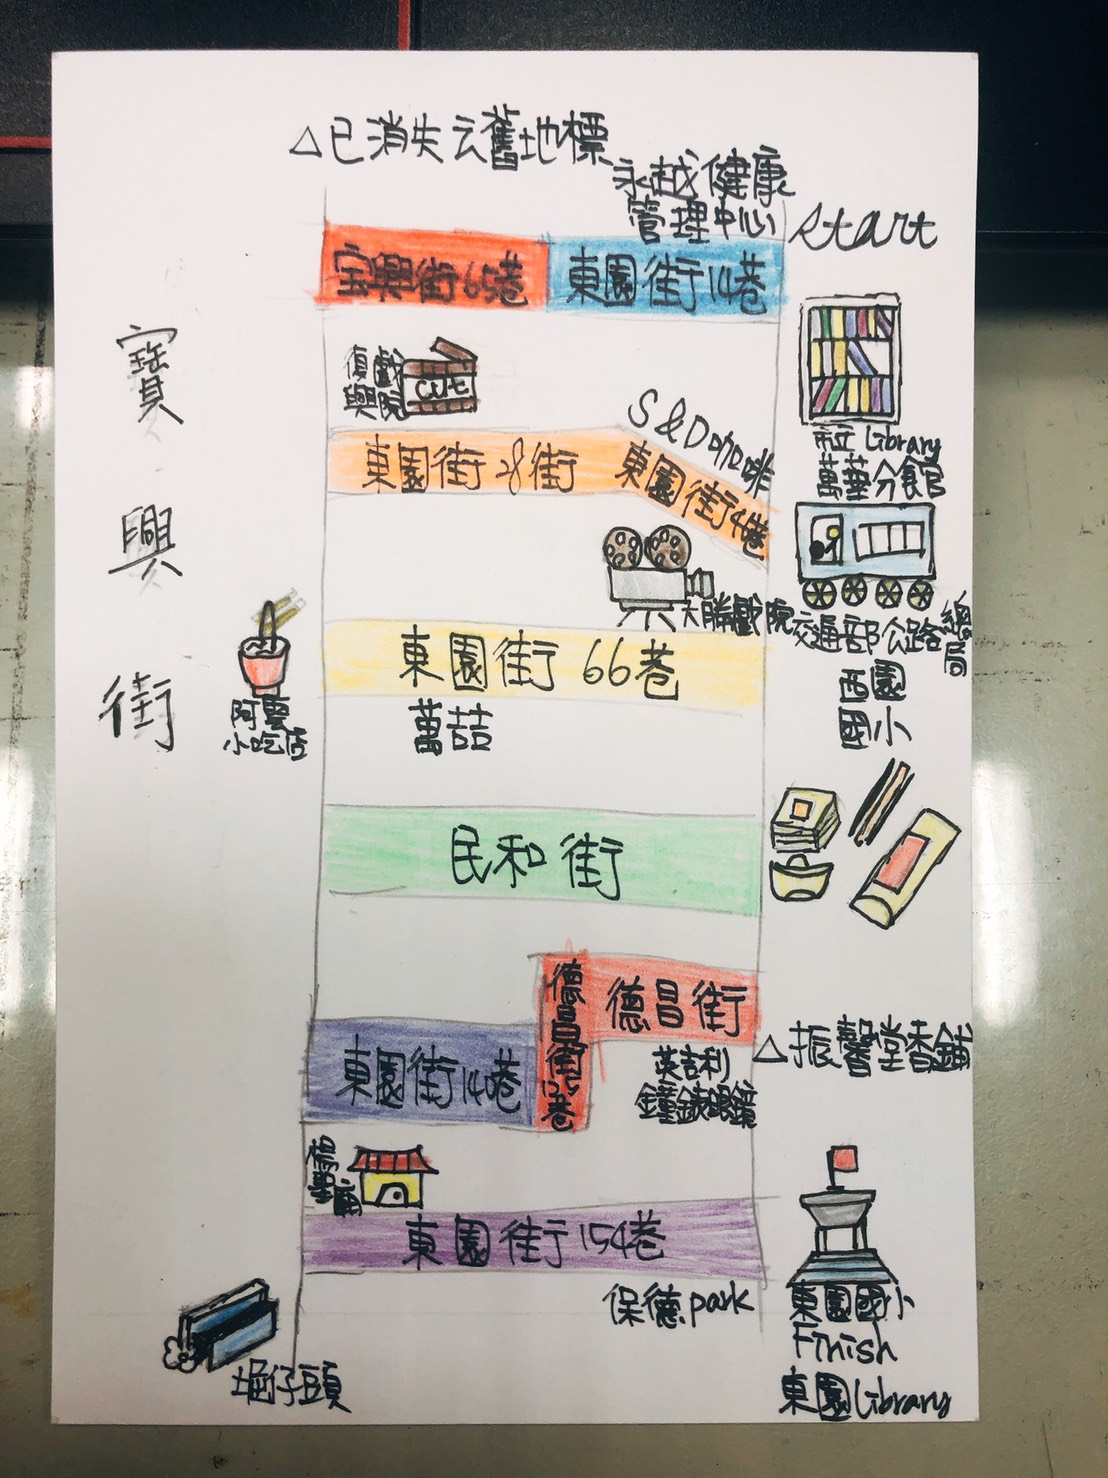 △已消失云舊地標
永越健康
管理中心
Start
宝興街65巷
東園街14巷
寶興街
復興
戲院
cut
S&D咖啡
市立Library
萬華分館
東園街28街
東園街4巷
大勝戲院
交通部公路總局
西園
國小
東園街66巷
阿雲
小吃店
萬喆
民和街
德昌街
德昌街12巷
△振馨堂香鋪
東園街140巷
英吉利
鐘錶眼鏡
東園街154巷
保德park
東園國小
Finish
東園Library
堀仔頭